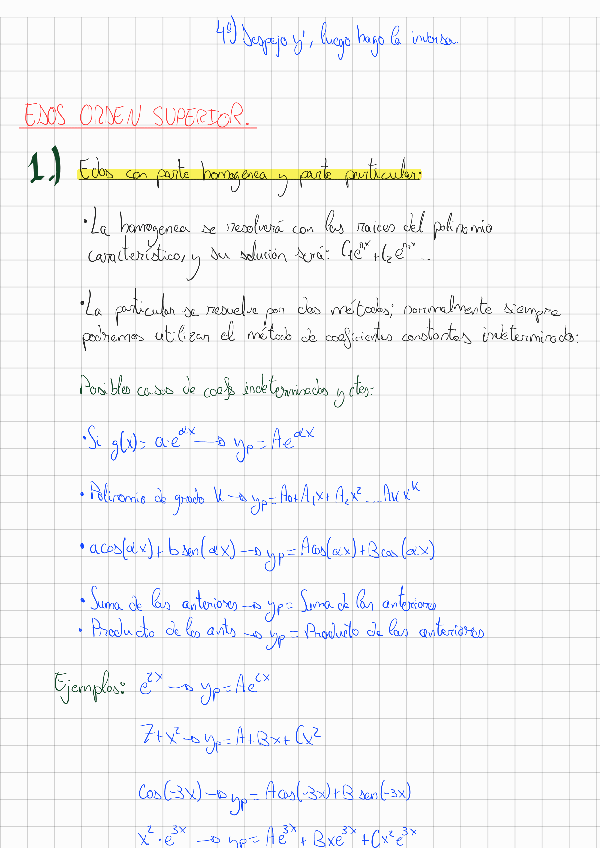 4º) Despejo y', luego hago la inversa.
EDOS ORDEN SUPERIOR.
1.) Edos con parte homogenea y parte particular:
• La homogenea se resolverá con las raices del polinomio
característico, y su solución será: C₁e^{r₁x} + C₂e^{r₂x} ...
• La particular se resuelve por dos métodos; normalmente siempre
podremos utilizar el método de coeficientes constantes indeterminado:
Posibles casos de coefs indeterminados y ctes:
• Si g(x) = a·e^{αx} → yₚ = Ae^{αx}
• Polinomio de grado K → yₚ = A₀ + A₁x + A₂x² ... AₖX^K
• acos(αx) + bsen(αx) → yₚ = Acos(αx) + Bcos(αx)
• Suma de las anteriores → yₚ = Suma de las anteriores
• Producto de las ants → yₚ = Producto de las anteriores
Ejemplos: e^{2x} → yₚ = Ae^{2x}
7+x² → yₚ = A+Bx+Cx²
cos(-3x) → yₚ = Acos(-3x) + B sen(-3x)
x²·e^{3x} → yₚ = Ae^{3x} + Bxe^{3x} + Cx²e^{3x}